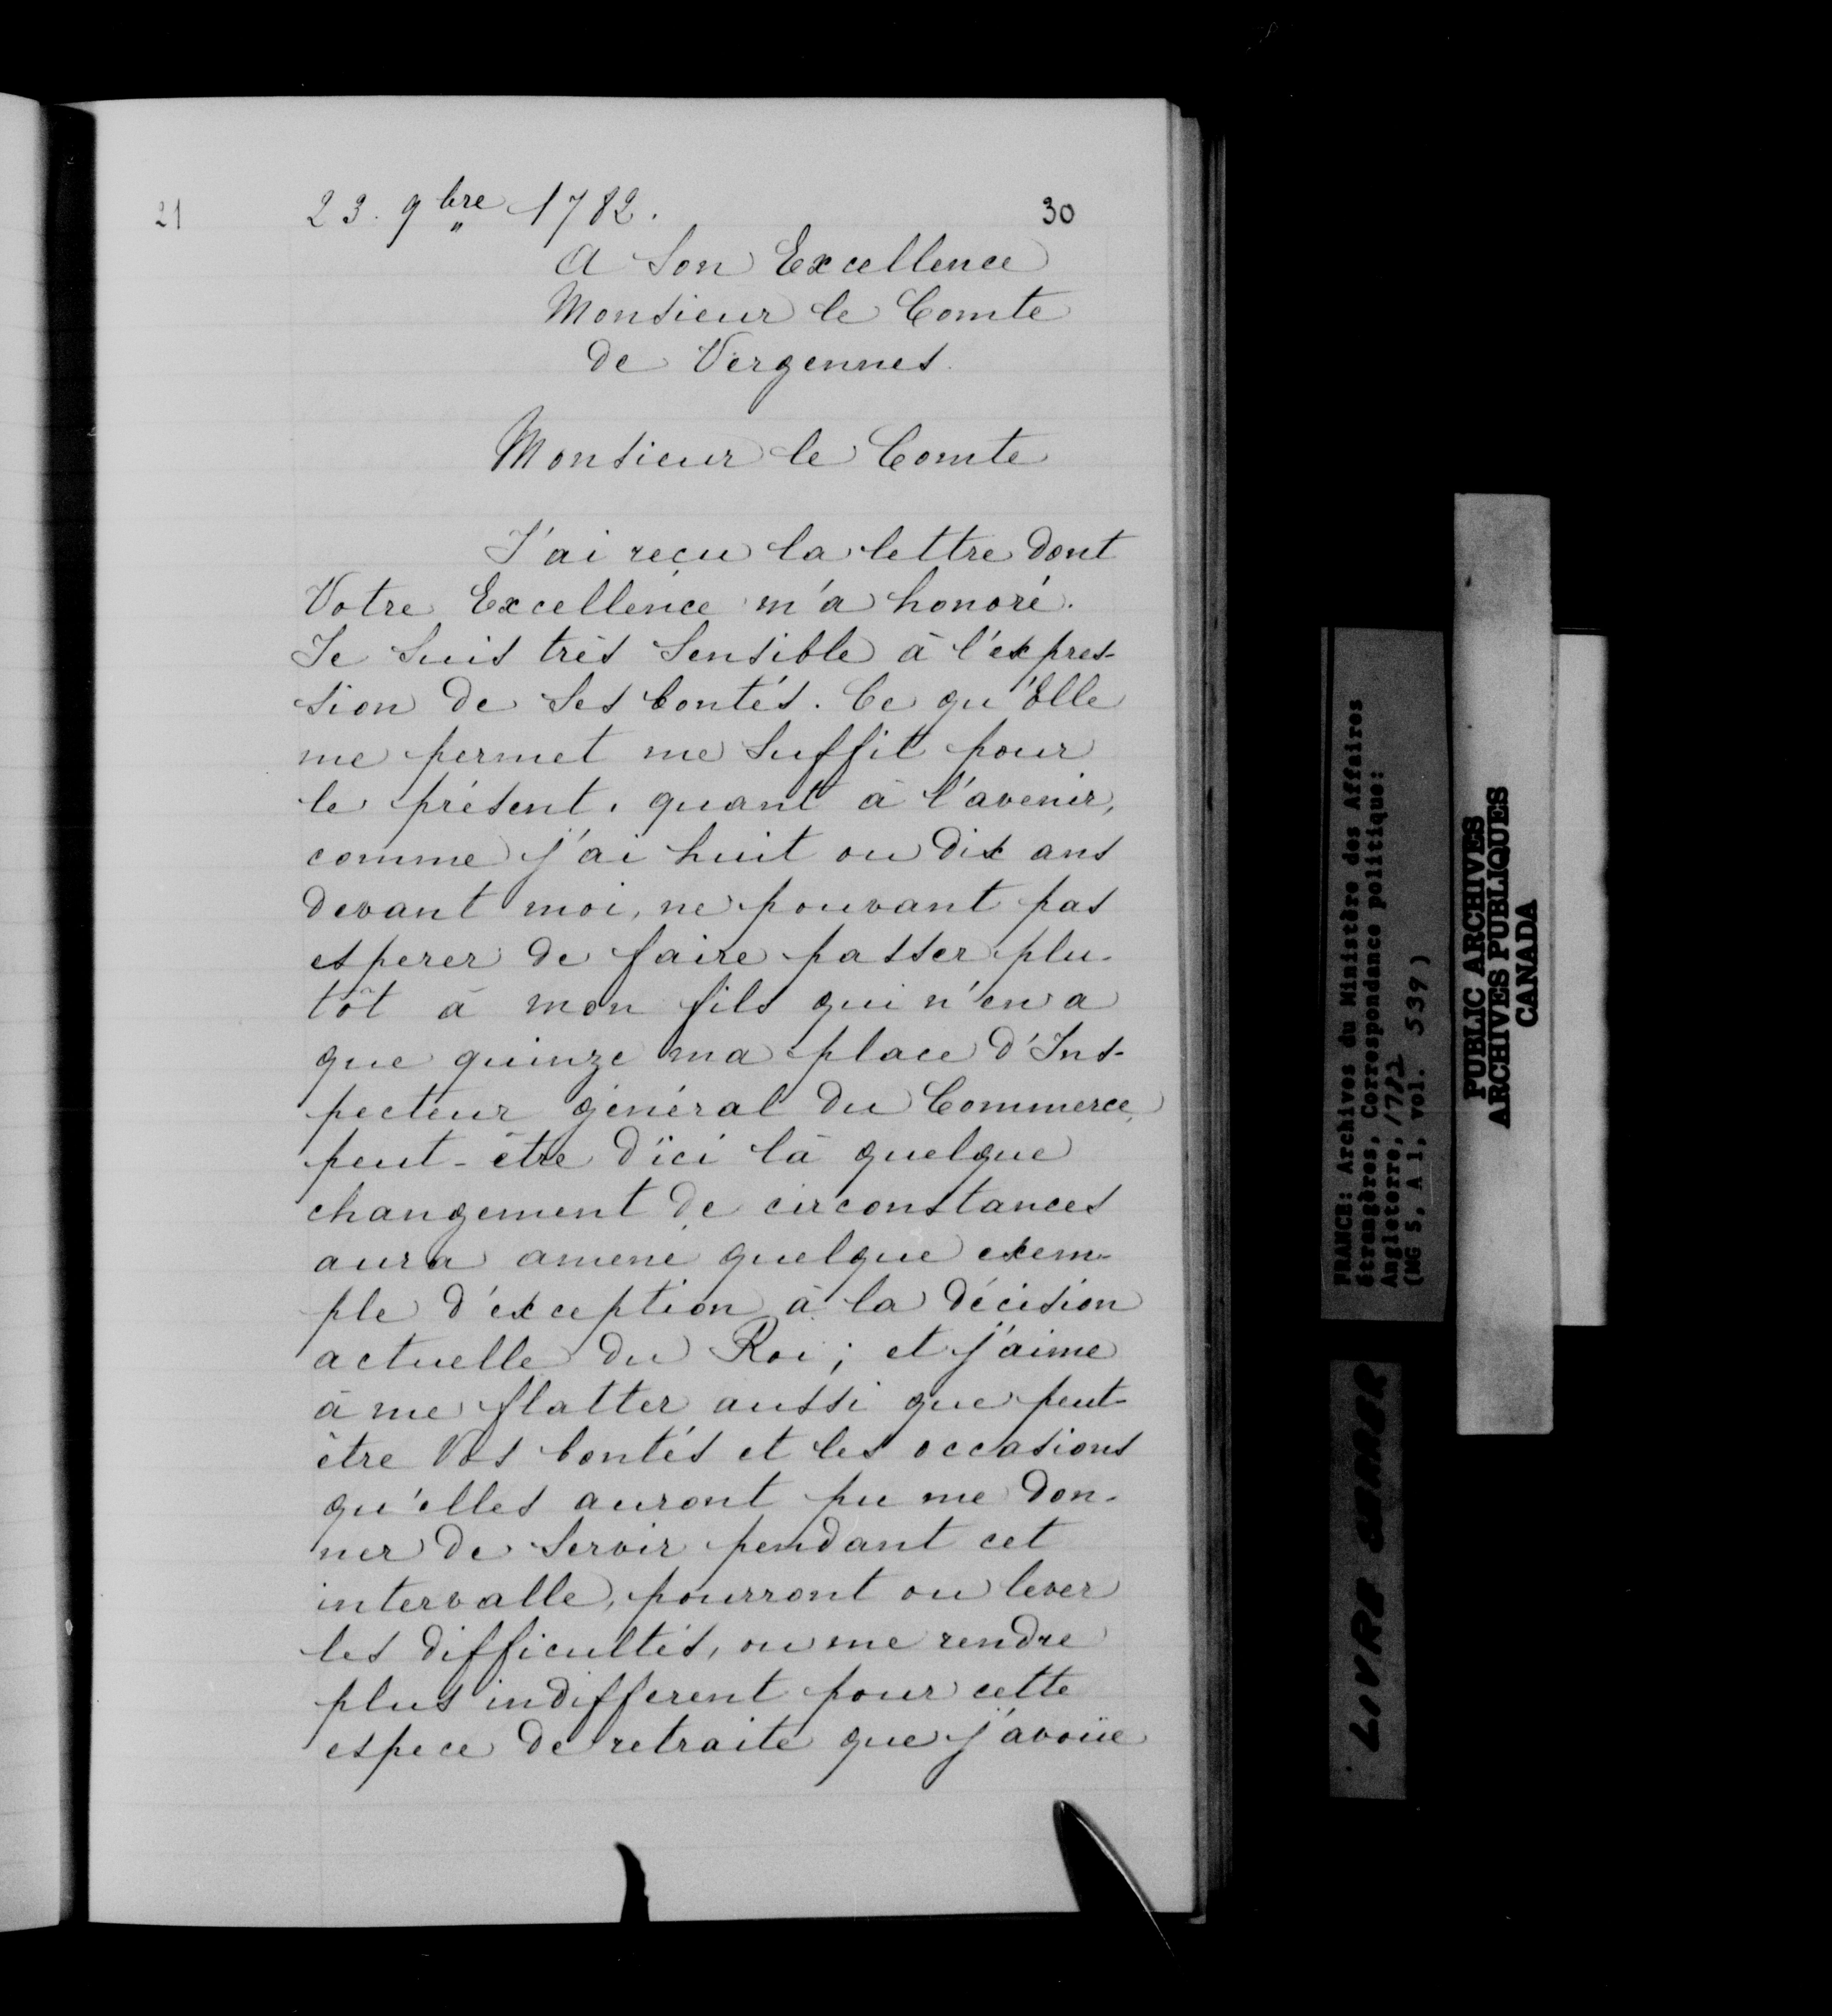 21
23. 9bre 1782.
30
A Son Excellence
Monsieur le Comte
de Vergennes.
Monsieur le Comte
J'ai reçu la lettre dont
Votre Excellence m'a honoré.
Je suis très sensible à l'expres-
sion de ses bontés. Ce qu'Elle
me permet me suffit pour
le présent. quant à l'avenir,
comme j'ai huit ou dix ans
devant moi, ne pouvant pas
esperer de faire passer plu-
tôt à mon fils qui n'en a
que quinze ma place d'Ins-
pecteur général du Commerce,
peut-être d'ici là quelque
changement de circonstances
aura amené quelque exem-
ple d'exception à la décision
actuelle du Roi; et j'aime
à me flatter aussi que peut-
être Vos bontés et les occasions
qu'elles auront pu me don-
ner de servir pendant cet
intervalle, pourront ou lever
les difficultés, ou me rendre
plus indifferent pour cette
espece de retraite que j'avoüe
FRANCE: Archives du Ministère des Affaires
étrangères, Correspondance politique:
Angleterre, 1782
(MG 5, A 1, vol. 539)
PUBLIC ARCHIVES
ARCHIVES PUBLIQUES
CANADA
LIVRE